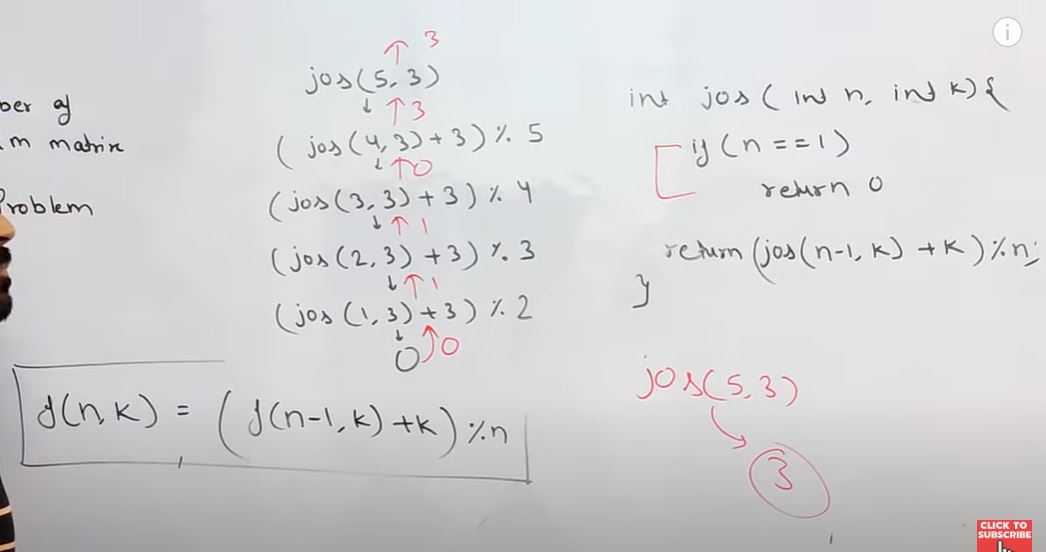 of
m matrix
Problem
3
jos(5, 3)
↓ ↑3
( jos(4, 3) + 3) % 5
↓ ↑0
(jos(3, 3) + 3) % 4
↓ ↑ 1
(jos(2, 3) + 3) % 3
↓ ↑ 1
(jos(1, 3) + 3) % 2
↓
0 0
j(n, k) = (j(n-1, k) + k) % n
int jos( int n, int k) {
if (n == 1)
return 0
return (jos(n-1, k) + k) % n;
}
jos(5, 3)
3
i
CLICK TO
SUBSCRIBE